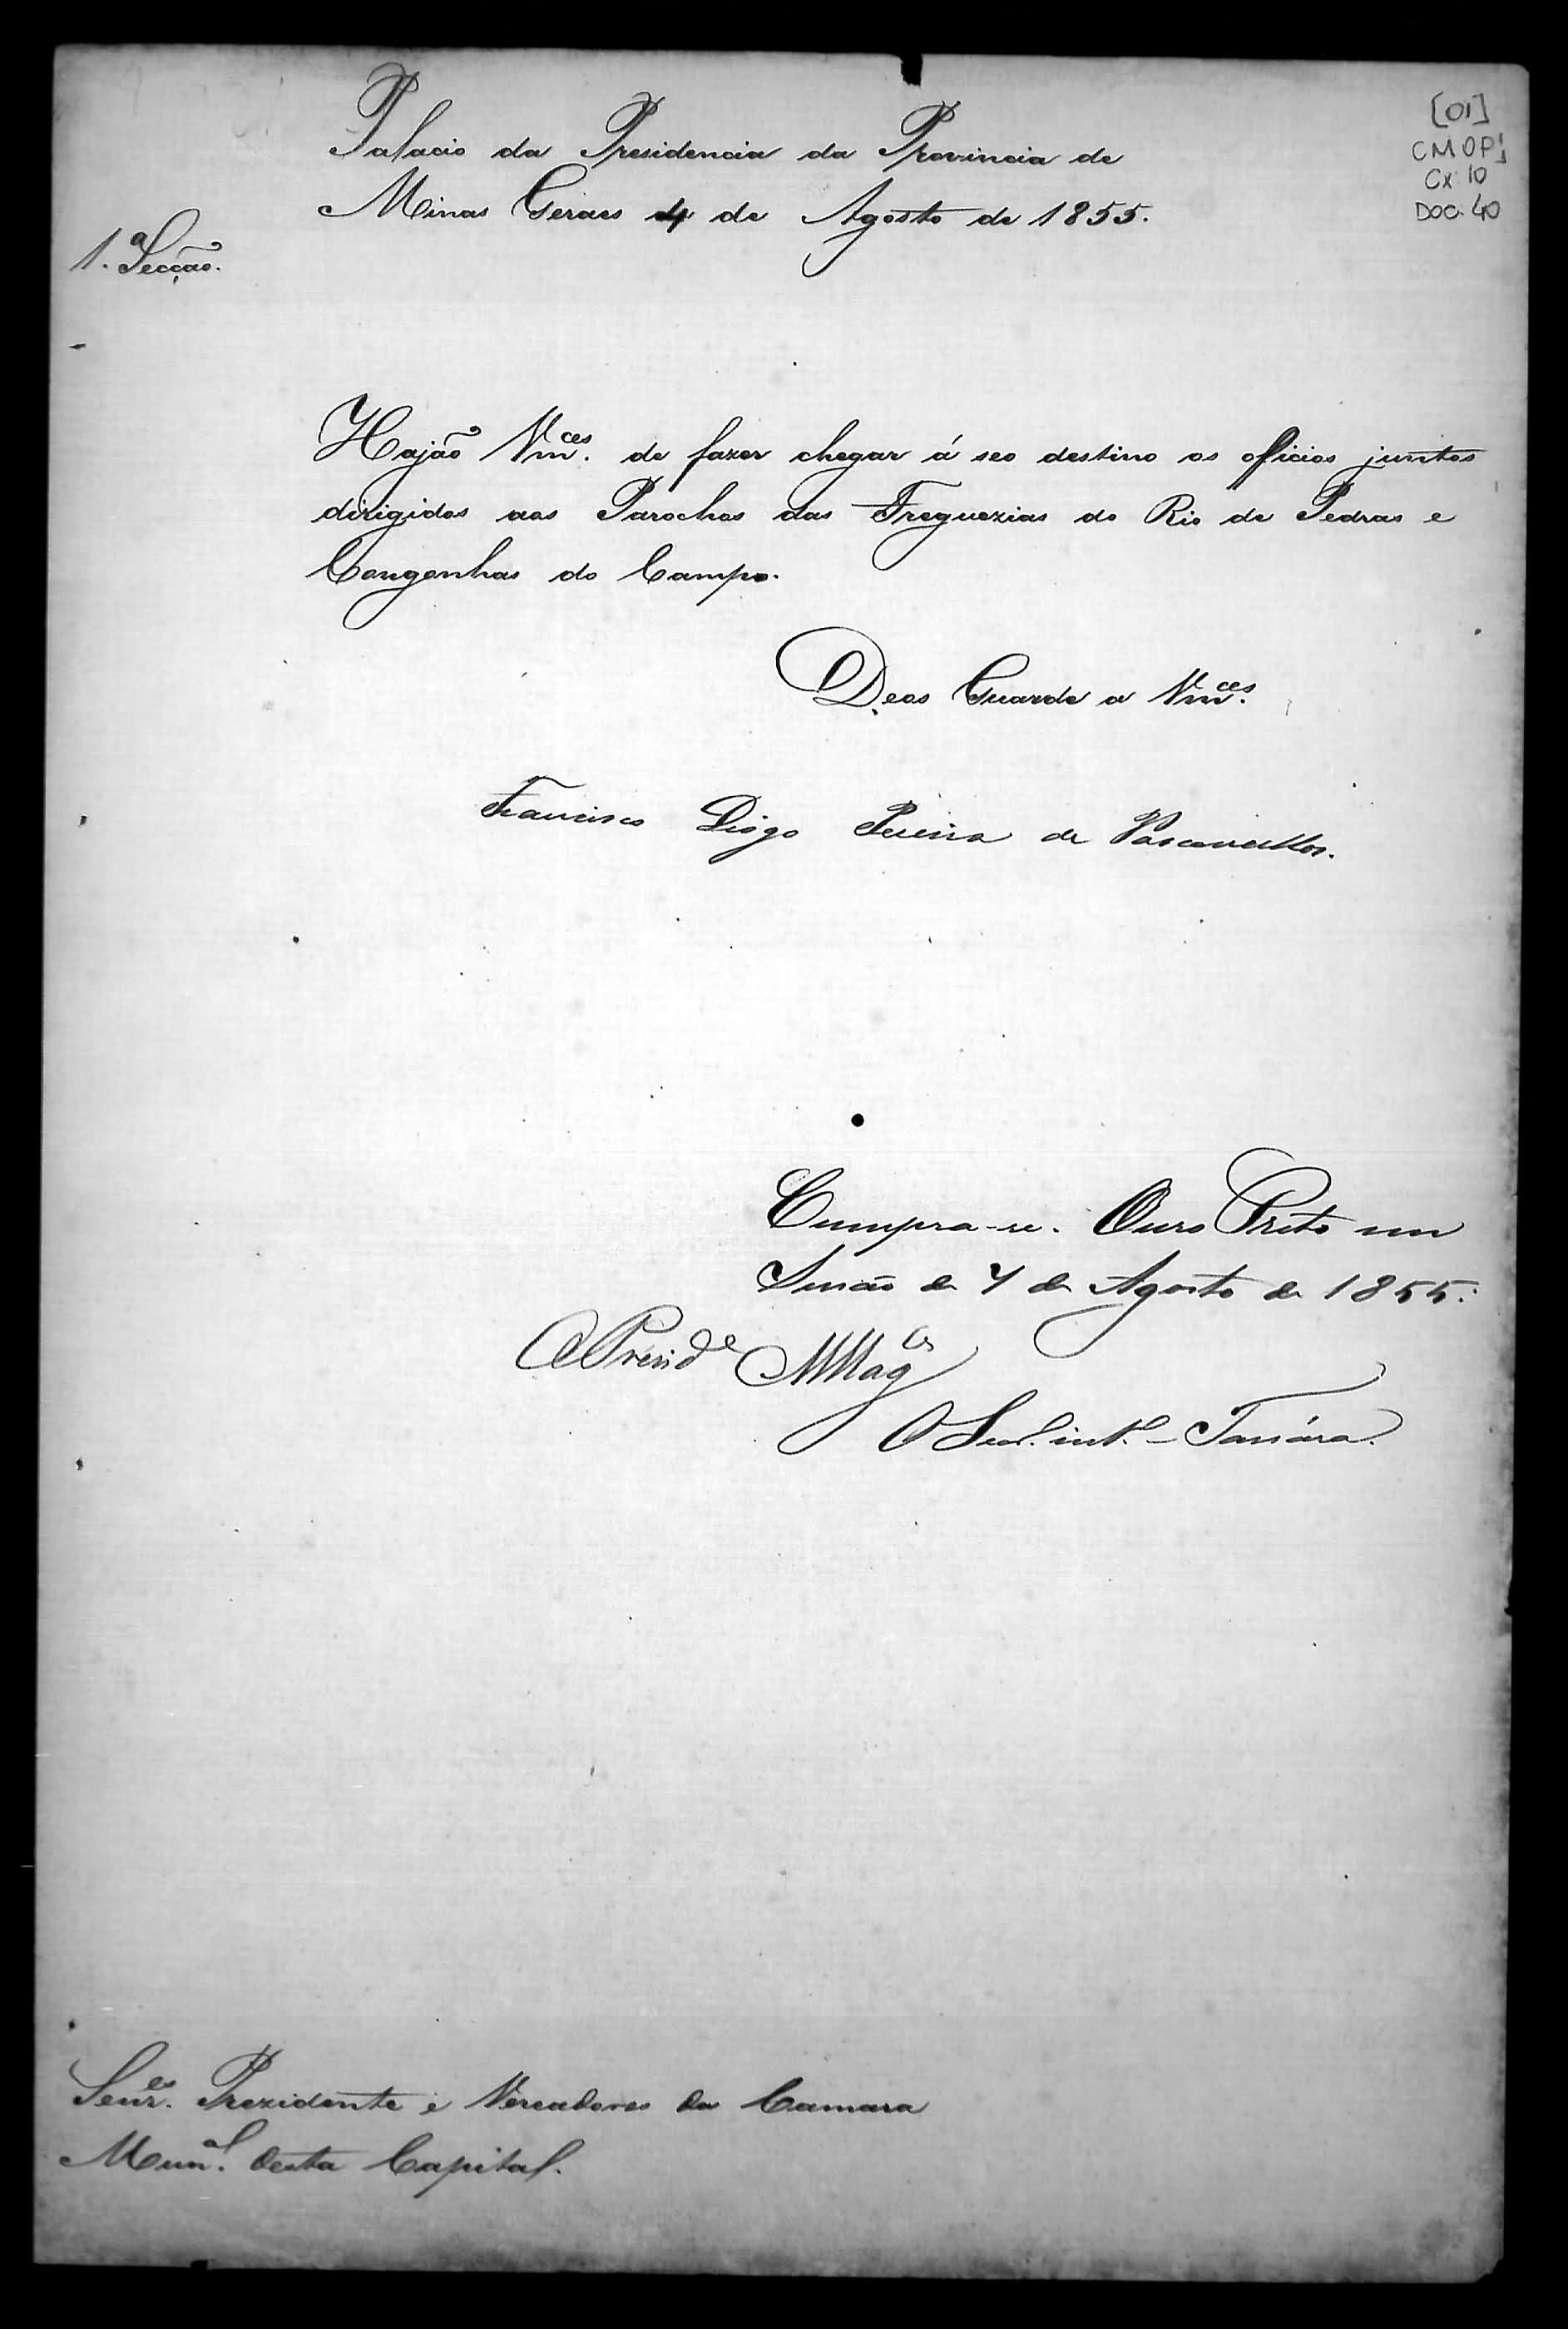 [01]
CMOP
Cx: 10
DOC. 40
Palacio da Presidencia da Provincia de
Minas Geraes 4 de Agosto de 1855.
1.ª Secção.
Hajão Vm.ces de fazer chegar á seo destino os oficios juntos
dirigidos aos Parochos das Freguezias do Rio de Pedras e
Congonhas do Campo.
Deos Guarde a Vm.ces
Francisco Diogo Pereira de Vasconcellos.
Cumpra-se. Ouro Preto em
Sessão de 7 de Agosto de 1855.
O Prezid.e MMag.es
O Secr. int.o -
Senr.es Prezidente e Vereadores da Camara
Mun.al desta Capital.